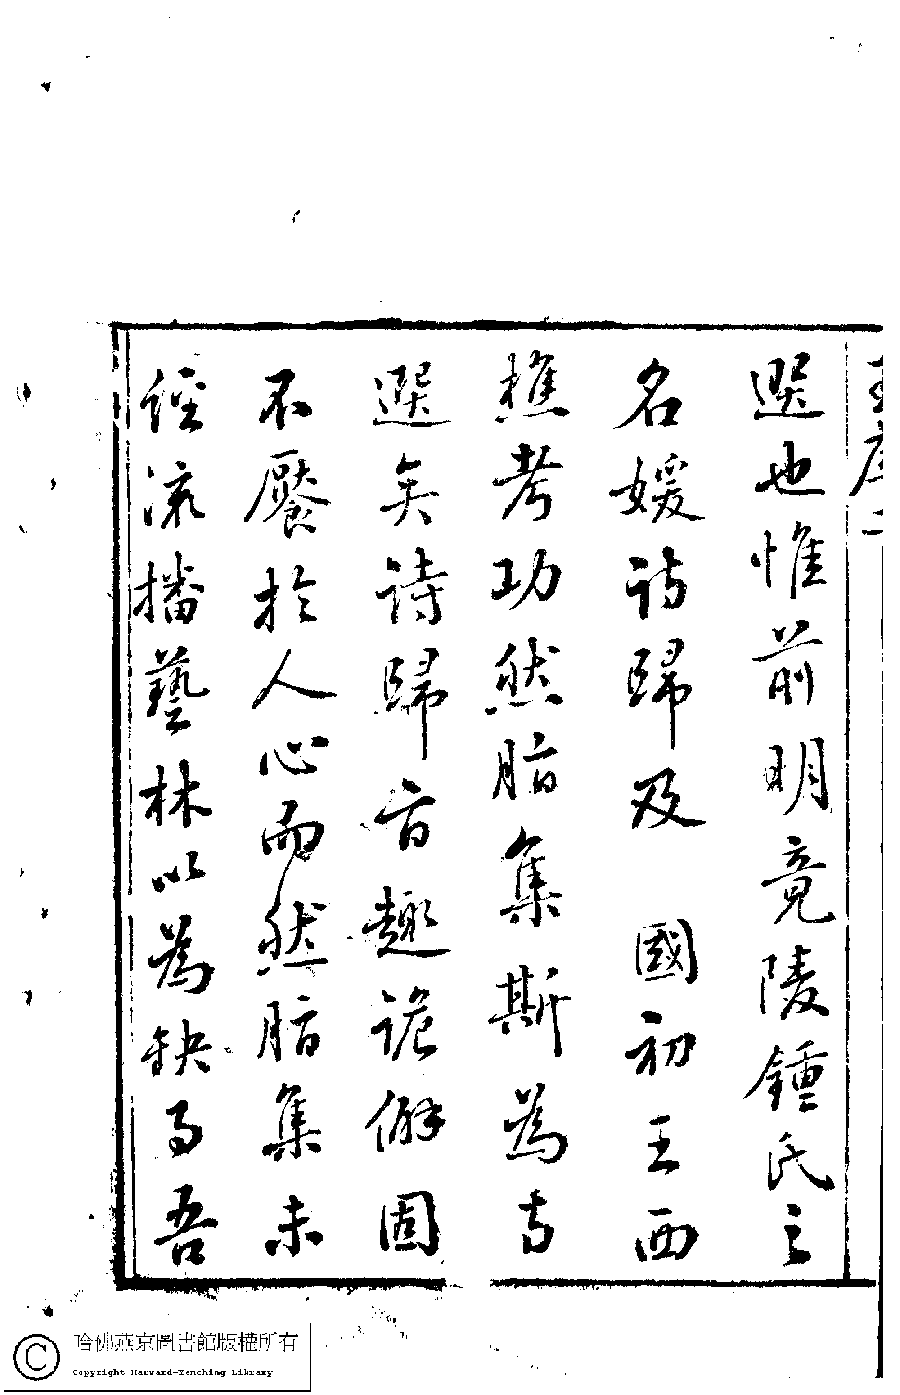 王序 二
選也惟前明竟陵鍾氏之
名媛詩歸及 國初王西
樵考功然脂集斯為專
選矣詩歸旨趣詭僻固
不饜於人心而然脂集未
經流播藝林以為缺事吾
哈佛燕京圖書館版權所有
Copyright Harvard-Yenching Library